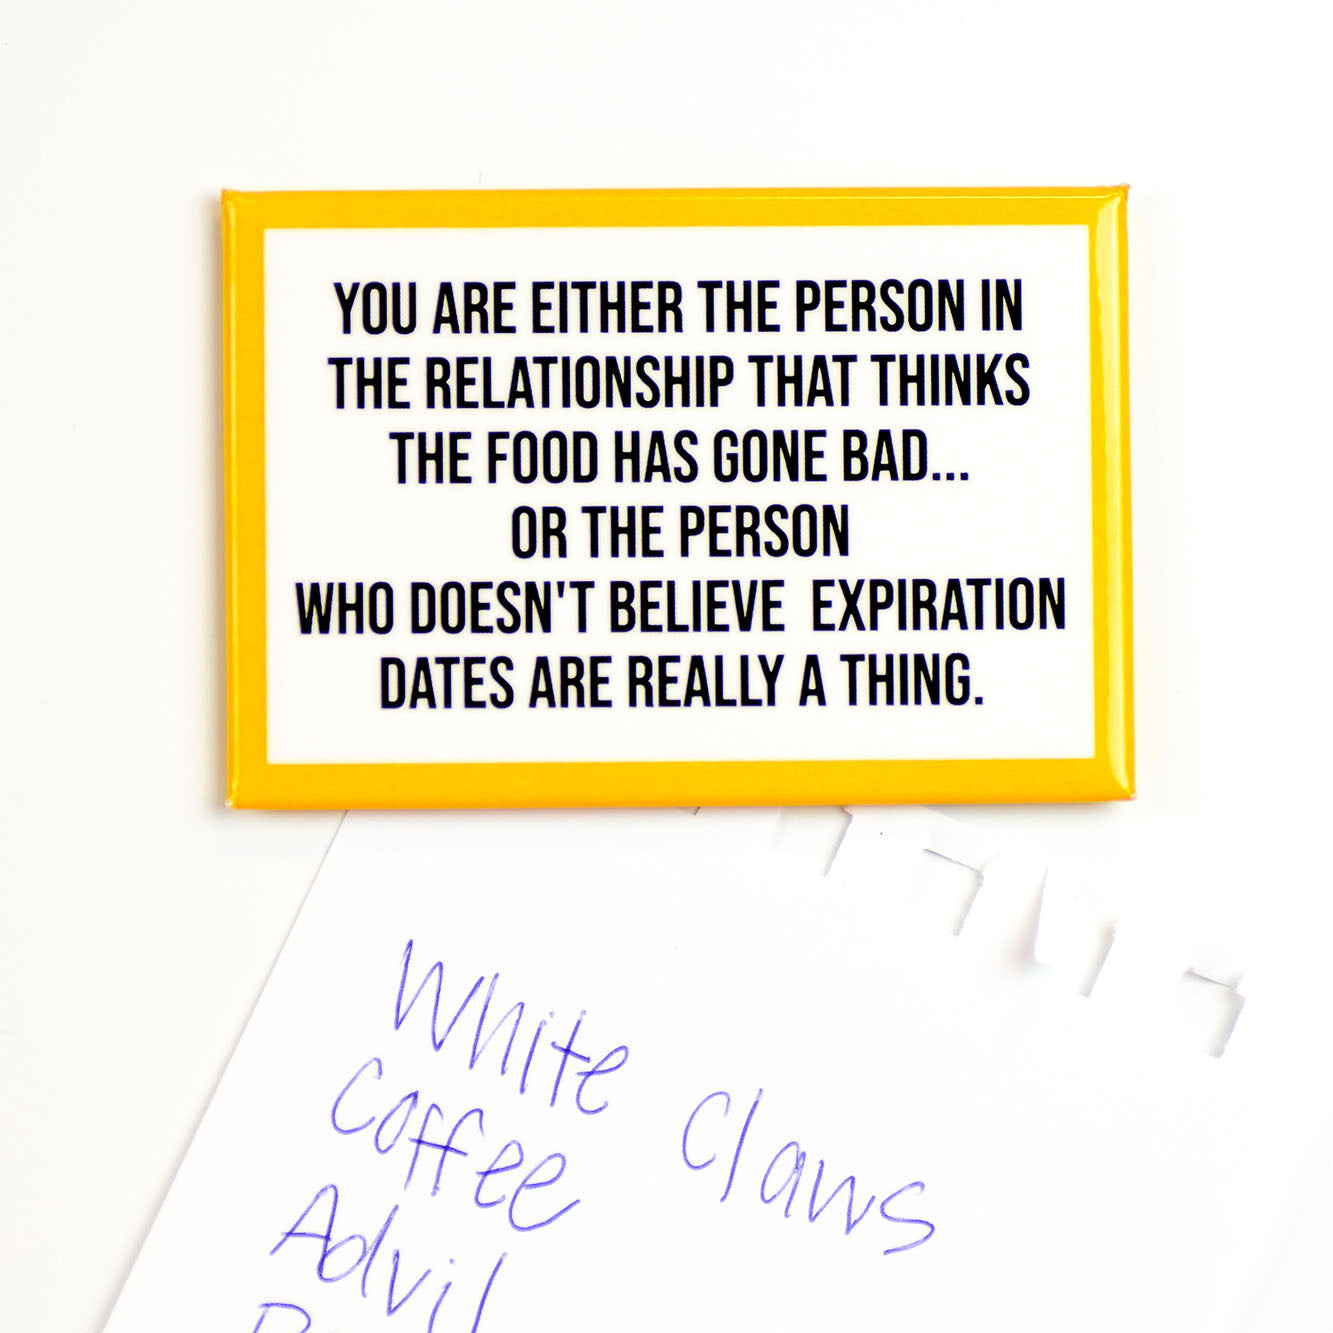 YOU ARE EITHER THE PERSON IN
THE RELATIONSHIP THAT THINKS
THE FOOD HAS GONE BAD...
OR THE PERSON
WHO DOESN'T BELIEVE EXPIRATION
DATES ARE REALLY A THING.
White Claws
Coffee
Advil